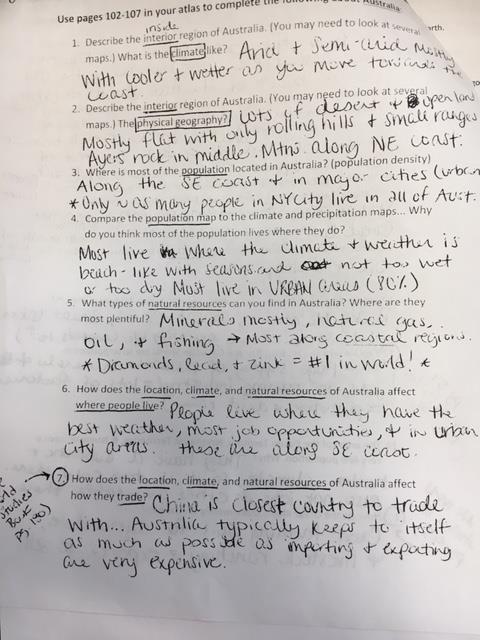 Use pages 102-107 in your atlas to complete the following about Australia
inside
1. Describe the interior region of Australia. (You may need to look at several
maps.) What is the climate like? Arid + Semi-arid mostly
With cooler + wetter as you move towards the
coast.
2. Describe the interior region of Australia. (You may need to look at several
maps.) physical geography? Lots of desert + open land
Mostly flat with only rolling hills + small ranges
Ayers rock in middle. Mtns. along NE coast.
3. Where is most of the population located in Australia? (population density)
Along the SE coast + in major cities (urban
* Only as many people in NYCity live in all of Aust.
4. Compare the population map to the climate and precipitation maps... Why
do you think most of the population lives where they do?
Most live where the climate + weather is
beach-like with seasons and not too wet
or too dry Most live in URBAN areas (80%)
5. What types of natural resources can you find in Australia? Where are they
most plentiful? Minerals mostly, natural gas,
oil, + fishing → Most along coastal regions.
* Diamonds, lead, + zink = #1 in world! *
6. How does the location, climate, and natural resources of Australia affect
where people live? People live where they have the
best weather, most job opportunities, + in urban
city areas. these are along SE coast.
7. How does the location, climate, and natural resources of Australia affect
how they trade? China is closest country to trade
with... Austrilia typically keeps to itself
as much as possible as importing + exporting
are very expensive.
Studies
Book
pg 190)